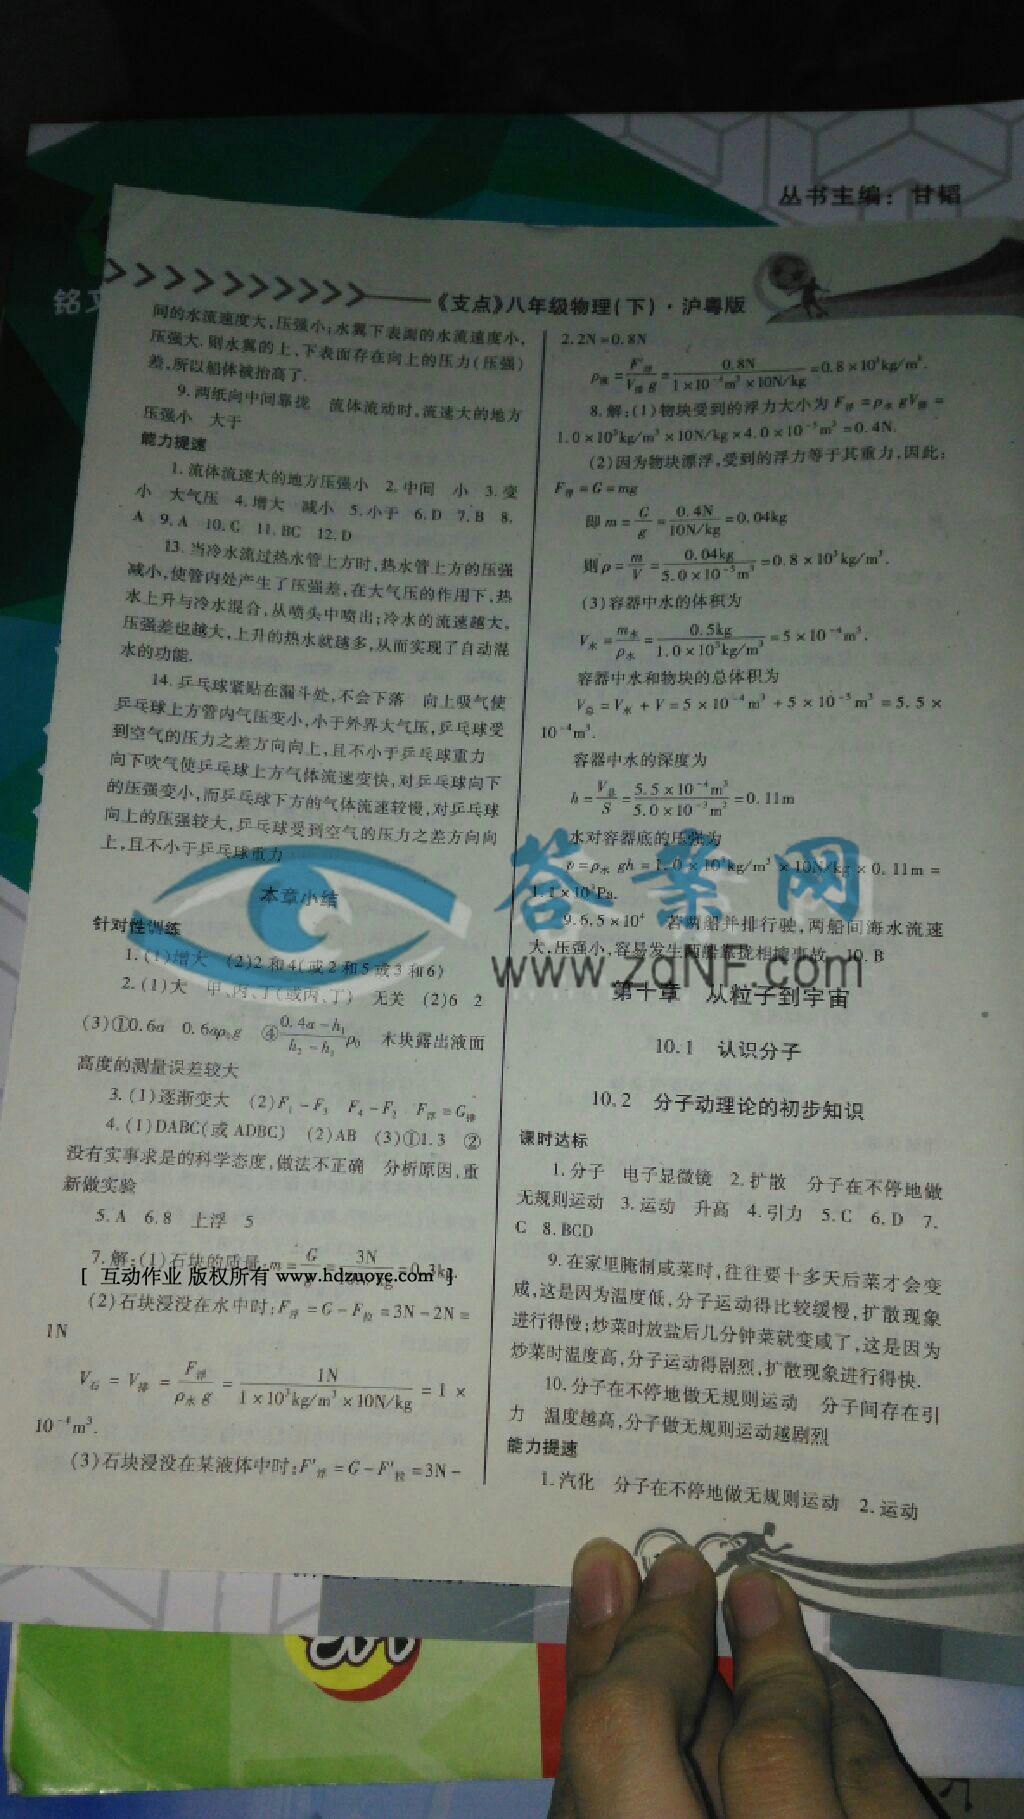 丛书主编：甘韬
铭文
《支点》八年级物理(下)·沪粤版
间的水流速度大,压强小;水翼下表面的水流速度小,
压强大.则水翼的上、下表面存在向上的压力(压强)
差,所以船体被抬高了.
9.两纸向中间靠拢　流体流动时,流速大的地方
压强小　大于
能力提速
1.流体流速大的地方压强小　2.中间　小　3.变
小　大气压　4.增大　减小　5.小于　6.D　7.B　8.
A　9.A　10.C　11.BC　12.D
13.当冷水流过热水管上方时,热水管上方的压强
减小,使管内处产生了压强差,在大气压的作用下,热
水上升与冷水混合,从喷头中喷出;冷水的流速越大,
压强差也越大,上升的热水就越多,从而实现了自动混
水的功能.
14.乒乓球紧贴在漏斗处,不会下落　向上吸气使
乒乓球上方管内气压变小,小于外界大气压,乒乓球受
到空气的压力之差方向向上,且不小于乒乓球重力
向下吹气使乒乓球上方气体流速变快,对乒乓球向下
的压强变小,而乒乓球下方的气体流速较慢,对乒乓球
向上的压强较大,乒乓球受到空气的压力之差方向向
上,且不小于乒乓球重力
本章小结
针对性训练
1.(1)增大　(2)2和4(或2和5或3和6)
2.(1)大　甲、丙、丁(或丙、丁)　无关　(2)6　2
(3)①0.6a　0.6aρ₀g　④(0.4a-h₁)/(h₂-h₁)ρ₀　木块露出液面
高度的测量误差较大
3.(1)逐渐变大　(2)F₁-F₃　F₄-F₂　F浮=G排
4.(1)DABC(或ADBC)　(2)AB　(3)①1.3　②
没有实事求是的科学态度,做法不正确　分析原因,重
新做实验
5.A　6.8　上浮　5
7.解:(1)石块的质量 m=G/g=3N/10N/kg=0.3kg.
[ 互动作业 版权所有 www.hdzuoye.com ]
(2)石块浸没在水中时:F浮=G-F拉=3N-2N=
1N
V石=V排=F浮/(ρ水g)=1N/(1×10³kg/m³×10N/kg)=1×
10⁻⁴m³.
(3)石块浸没在某液体中时:F′浮=G-F′拉=3N-
2.2N=0.8N
ρ液=F′浮/(V排g)=0.8N/(1×10⁻⁴m³×10N/kg)=0.8×10³kg/m³.
8.解:(1)物块受到的浮力大小为F浮=ρ水gV排=
1.0×10³kg/m³×10N/kg×4.0×10⁻⁵m³=0.4N.
(2)因为物块漂浮,受到的浮力等于其重力,因此:
F浮=G=mg
即m=G/g=0.4N/10N/kg=0.04kg
则ρ=m/V=0.04kg/(5.0×10⁻⁵m³)=0.8×10³kg/m³.
(3)容器中水的体积为
V水=m水/ρ水=0.5kg/(1.0×10³kg/m³)=5×10⁻⁴m³.
容器中水和物块的总体积为
V总=V水+V=5×10⁻⁴m³+5×10⁻⁵m³=5.5×
10⁻⁴m³.
容器中水的深度为
h=V总/S=5.5×10⁻⁴m³/(5.0×10⁻³m²)=0.11m
水对容器底的压强为
p=ρ水gh=1.0×10³kg/m³×10N/kg×0.11m=
1.1×10³Pa.
9.6.5×10⁴　若两船并排行驶,两船间海水流速
大,压强小,容易发生两船靠拢相撞事故　10.B
答案网
www.zqNF.com
第十章　从粒子到宇宙
10.1　认识分子
10.2　分子动理论的初步知识
课时达标
1.分子　电子显微镜　2.扩散　分子在不停地做
无规则运动　3.运动　升高　4.引力　5.C　6.D　7.
C　8.BCD
9.在家里腌制咸菜时,往往要十多天后菜才会变
咸,这是因为温度低,分子运动得比较缓慢,扩散现象
进行得慢;炒菜时放盐后几分钟菜就变咸了,这是因为
炒菜时温度高,分子运动得剧烈,扩散现象进行得快.
10.分子在不停地做无规则运动　分子间存在引
力　温度越高,分子做无规则运动越剧烈
能力提速
1.汽化　分子在不停地做无规则运动　2.运动